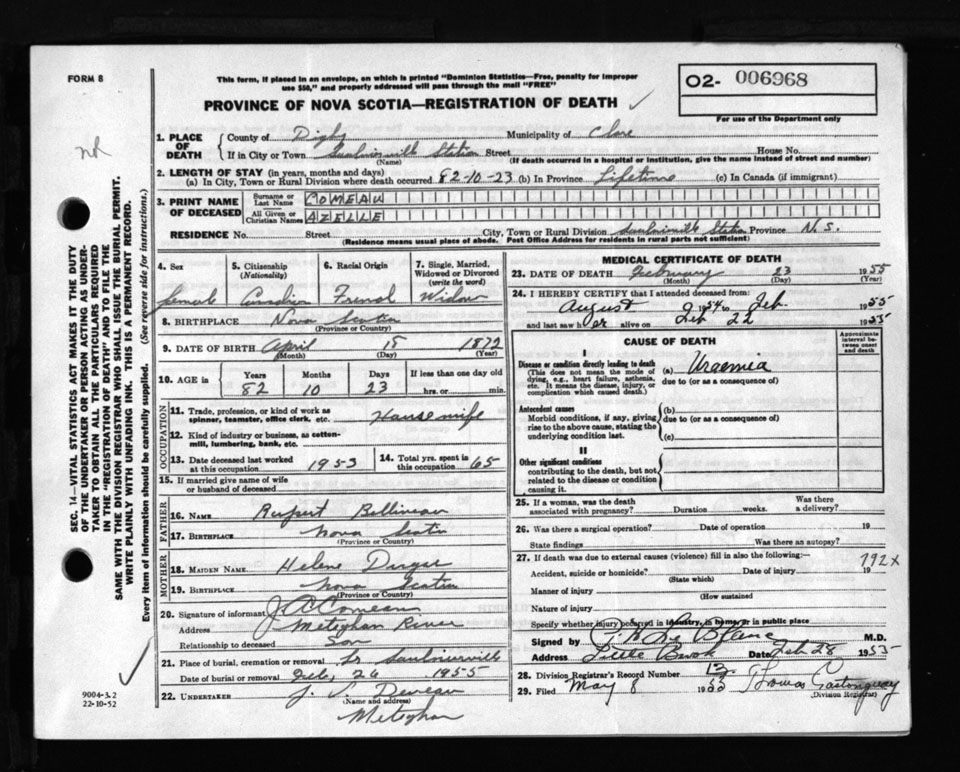 FORM 8
This form, if placed in an envelope, on which is printed "Dominion Statistics—Free, penalty for improper
use $50," and properly addressed will pass through the mail "FREE"
O2- 006968
For use of the Department only
PROVINCE OF NOVA SCOTIA—REGISTRATION OF DEATH
NR
SEC. 14—VITAL STATISTICS ACT MAKES IT THE DUTY
OF THE UNDERTAKER OR PERSON ACTING AS UNDER-
TAKER TO OBTAIN ALL THE PARTICULARS REQUIRED
IN THE "REGISTRATION OF DEATH" AND TO FILE THE
SAME WITH THE DIVISION REGISTRAR WHO SHALL ISSUE THE BURIAL PERMIT.
WRITE PLAINLY WITH UNFADING INK. THIS IS A PERMANENT RECORD.
Every item of information should be carefully supplied. (See reverse side for instructions.)
9004-3.2
22-10-52
1. PLACE OF DEATH
County of Digby Municipality of Clare
If in City or Town Saulnierville Station Street House No.
(Name) (If death occurred in a hospital or institution, give the name instead of street and number)
2. LENGTH OF STAY (in years, months and days)
(a) In City, Town or Rural Division where death occurred 82-10-23 (b) In Province Lifetime (c) In Canada (if immigrant)
3. PRINT NAME OF DECEASED
Surname or Last Name COMEAU
All Given or Christian Names AZELLE
RESIDENCE No. Street City, Town or Rural Division Saulnierville Station Province N.S.
(Residence means usual place of abode. Post Office Address for residents in rural parts not sufficient)
4. Sex
Female
5. Citizenship (Nationality)
Canadian
6. Racial Origin
French
7. Single, Married, Widowed or Divorced (write the word)
Widow
8. BIRTHPLACE Nova Scotia
(Province or Country)
9. DATE OF BIRTH April 15 1872
(Month) (Day) (Year)
10. AGE in Years Months Days If less than one day old
82 10 23 hrs. or min.
OCCUPATION
11. Trade, profession, or kind of work as
spinner, teamster, office clerk, etc. Housewife
12. Kind of industry or business, as cotton-
mill, lumbering, bank, etc.
13. Date deceased last worked
at this occupation 1953
14. Total yrs. spent
in this occupation 65
15. If married give name of wife
or husband of deceased
FATHER
16. NAME Rupert Belliveau
17. BIRTHPLACE Nova Scotia
(Province or Country)
MOTHER
18. MAIDEN NAME Helene Dugas
19. BIRTHPLACE Nova Scotia
(Province or Country)
20. Signature of informant J A C Comeau
Address Meteghan River
Relationship to deceased Son
21. Place of burial, cremation or removal Saulnierville
Date of burial or removal Feb. 26 1955
22. UNDERTAKER J. S. Deveau
(Name and address)
Meteghan
MEDICAL CERTIFICATE OF DEATH
23. DATE OF DEATH February 23 1955
(Month) (Day) (Year)
24. I HEREBY CERTIFY that I attended deceased from:
August 1954 to Feb. 1955
and last saw her alive on Feb 22 1955
CAUSE OF DEATH
Approximate interval between onset and death
I
Disease or condition directly leading to death
(This does not mean the mode of
dying, e.g., heart failure, asthenia,
etc. It means the disease, injury, or
complication which caused death.)
(a) Uraemia
due to (or as a consequence of)
Antecedent causes
Morbid conditions, if any, giving
rise to the above cause, stating the
underlying condition last.
(b)
due to (or as a consequence of)
(c)
II
Other significant conditions
contributing to the death, but not
related to the disease or condition
causing it.
25. If a woman, was the death
associated with pregnancy? Duration weeks. Was there a delivery?
26. Was there a surgical operation? Date of operation 19
State findings Was there an autopsy?
27. If death was due to external causes (violence) fill in also the following:—
792x
Accident, suicide or homicide? Date of injury 19
(State which)
Manner of injury
(How sustained
Nature of injury
Specify whether injury occurred in industry, in home, or in public place
Signed by Le Blanc M.D.
Address Little Brook Date Feb 28 1955
28. Division Registrar's Record Number 13
29. Filed May 8 1955 Thomas Gastonguay
(Division Registrar)